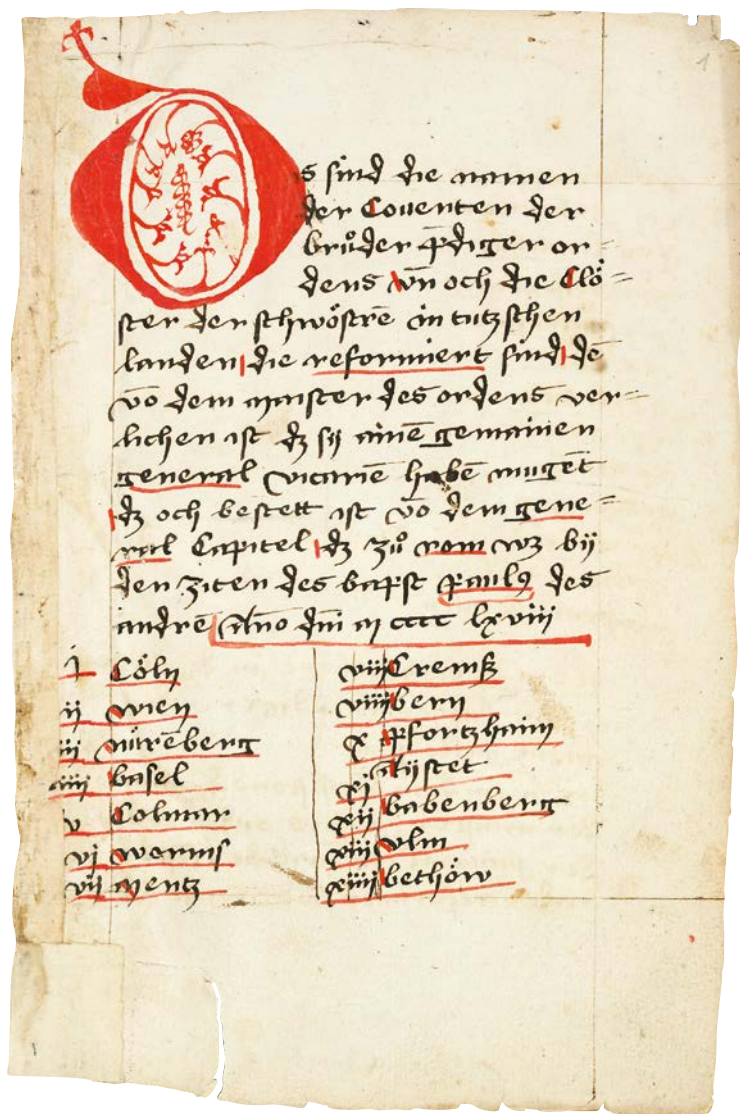 1
Ds sind die namen
der Couenten der
bruͦder p̄diger or=
dens vn̄ och die Cloͤ=
ster der schwoͤstrē in tutzschen
landen die reformiert sind dē
vō dem maister des ordens ver=
lichen ist dz sy ainē gemainen
general vicariē habē mugēt
dz och bestett ist vō dem gene=
ral Capitel dz zuͦ rom wz by
den ziten des bapst paulꝰ des
andrē Anno dn̄i m cccc lxviii
i Coͤln
ii wien
iii nuͤrēberg
iiii basel
v Colmar
vi worms
vii mentz
viii Cremß
viiii bern
x pfortzhaim
xi Aystet
xii babenberg
xiii vlm
xiiii bethoͤw